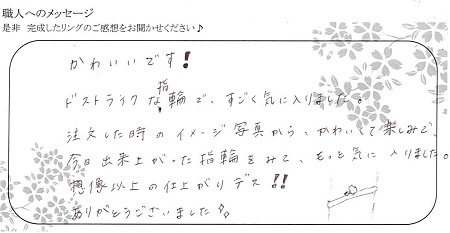 職人へのメッセージ
是非 完成したリングのご感想をお聞かせください♪
かわいいです!
ドストライクな指輪で、すごく気に入りました。
注文した時のイメージ写真から、かわいくて楽しみで
今日出来上がった指輪をみて、もっと気に入りました。
想像以上の仕上がりデス!!
ありがとうございました